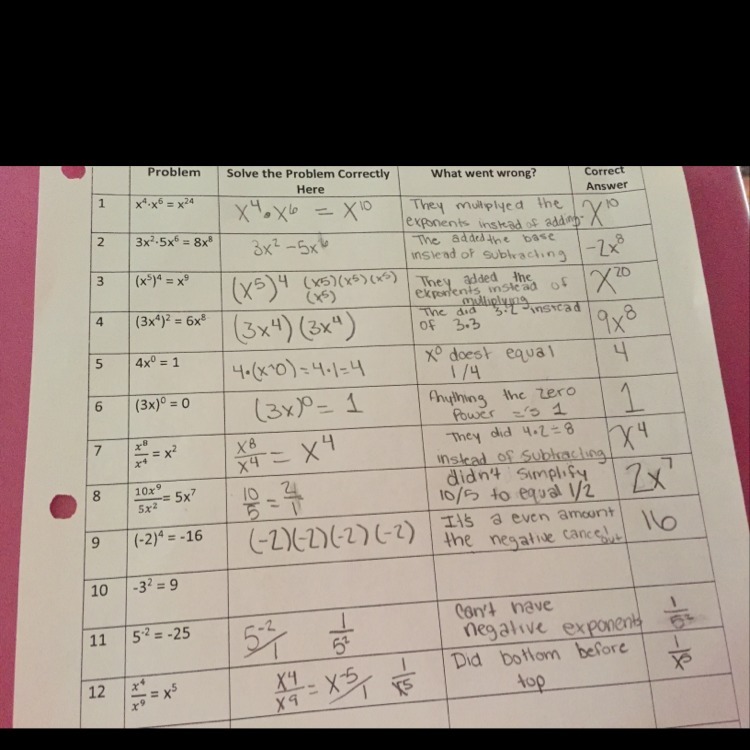 Problem Solve the Problem Correctly Here What went wrong? Correct Answer
1 x⁴·x⁶ = x²⁴ X⁴•X⁶ = X¹⁰ They multiplyed the exponents instead of adding. X¹⁰
2 3x²·5x⁶ = 8x⁸ 3x² -5x⁶ The added the base instead of subtracting -2x⁸
3 (x⁵)⁴ = x⁹ (X⁵)⁴ (x⁵)(x⁵)(x⁵) (x⁵) They added the exponents instead of multiplying X²⁰
4 (3x⁴)² = 6x⁸ (3x⁴)(3x⁴) The did 3·2 instead of 3.3 9x⁸
5 4x⁰ = 1 4•(x^0)=4•1=4 X⁰ doest equal 1/4 4
6 (3x)⁰ = 0 (3x)⁰ = 1 Anything the zero Power = 1 1
7 x⁸/x⁴ = x² X⁸/X⁴ = X⁴ They did 4•2=8 instead of subtracting X⁴
8 10x⁹/5x² = 5x⁷ 10/5 = 2/1 didn't simplify 10/5 to equal 1/2 2X⁷
9 (-2)⁴ = -16 (-2)(-2)(-2)(-2) It's a even amount the negative cancel out 16
10 -3² = 9
11 5⁻² = -25 5⁻²/1 1/5² Can't have negative exponents 1/5²
12 x⁴/x⁹ = x⁵ X⁴/X⁹ = X⁻⁵/1 1/X⁵ Did bottom before top 1/X⁵